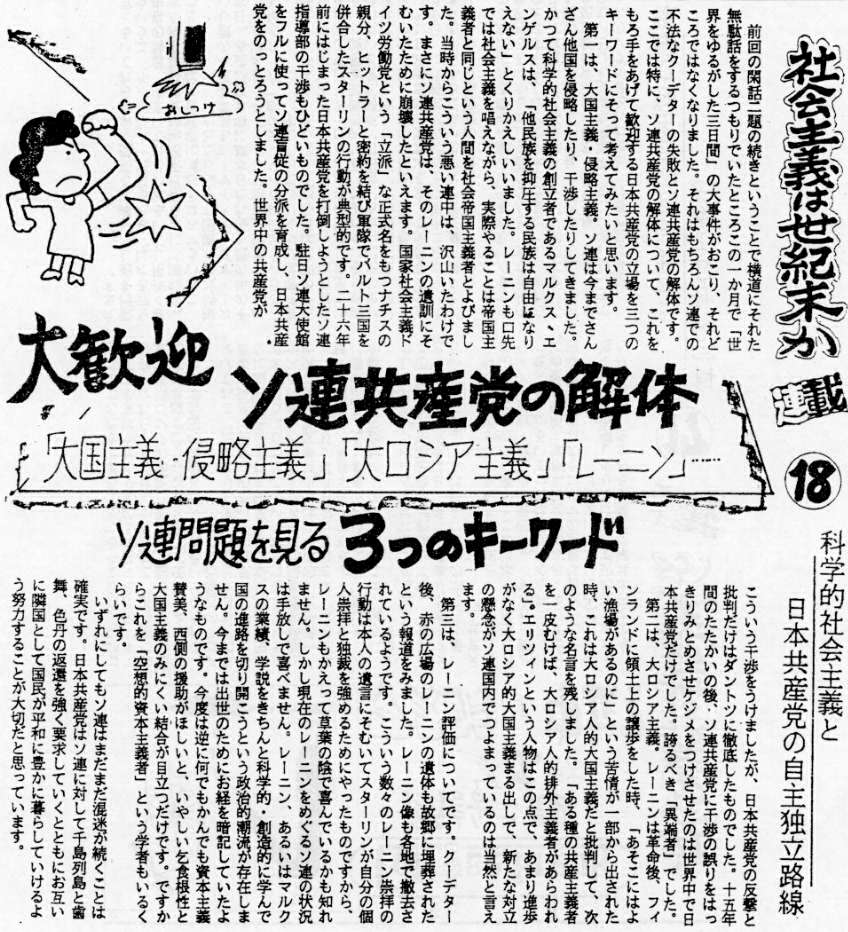 社会主義は世紀末か
連載
18
科学的社会主義と
日本共産党の自主独立路線
前回の閑話二題の続きということで横道にそれた
無駄話をするつもりでいたところこの一か月で「世
界をゆるがした三日間」の大事件がおこり、それど
ころではなくなりました。それはもちろんソ連での
不法なクーデターの失敗とソ連共産党の解体です。
ここでは特に、ソ連共産党の解体について、これを
もろ手をあげて歓迎する日本共産党の立場を三つの
キーワードにそって考えてみたいと思います。
第一は、大国主義・侵略主義。ソ連は今までさん
ざん他国を侵略したり、干渉したりしてきました。
かつて科学的社会主義の創立者であるマルクス、エ
ンゲルスは、「他民族を抑圧する民族は自由になり
えない」とくりかえしいいました。レーニンも口先
では社会主義を唱えながら、実際やることは帝国主
義者と同じという人間を社会帝国主義者とよびまし
た。当時からこういう悪い連中は、沢山いたわけで
す。まさにソ連共産党は、そのレーニンの遺訓にそ
むいたために崩壊したといえます。国家社会主義ド
イツ労働党という「立派」な正式名をもつナチスの
親分、ヒットラーと密約を結び軍隊でバルト三国を
併合したスターリンの行動が典型的です。二十六年
前にはじまった日本共産党を打倒しようとしたソ連
指導部の干渉もひどいものでした。駐日ソ連大使館
をフルに使ってソ連盲従の分派を育成し、日本共産
党をのっとろうとしました。世界中の共産党が
おしつけ
大歓迎
ソ連共産党の解体
「大国主義・侵略主義」「大ロシア主義」「レーニン」……
ソ連問題を見る3つのキーワード
こういう干渉をうけましたが、日本共産党の反撃と
批判だけはダントツに徹底したものでした。十五年
間のたたかいの後、ソ連共産党に干渉の誤りをはっ
きりみとめさせケジメをつけさせたのは世界中で日
本共産党だけでした。誇るべき「異端者」でした。
第二は、大ロシア主義。レーニンは革命後、フィ
ンランドに領土上の譲歩をした時、「あそこにはよ
い漁場があるのに」という苦情が一部から出された
時、これは大ロシア人的大国主義だと批判して、次
のような名言を残しました。「ある種の共産主義者
を一皮むけば、大ロシア人的排外主義者があらわれ
る」。エリツィンという人物はこの点で、あまり進歩
がなく大ロシア的大国主義まる出しで、新たな対立
の懸念がソ連国内でつよまっているのは当然と言え
ます。
第三は、レーニン評価についてです。クーデター
後、赤の広場のレーニンの遺体も故郷に埋葬された
という報道をみました。レーニン像も各地で撤去さ
れているようです。こういう数々のレーニン崇拝の
行動は本人の遺言にそむいてスターリンが自分の個
人崇拝と独裁を強めるためにやったものですから、
レーニンもかえって草葉の陰で喜んでいるかも知れ
ません。しかし現在のレーニンをめぐるソ連の状況
は手放しで喜べません。レーニン、あるいはマルク
スの業績、学説をきちんと科学的・創造的に学んで
国の進路を切り開こうという政治的潮流が存在しま
せん。今までは出世のためにお経を暗記していたよ
うなものです。今度は逆に何でもかんでも資本主義
賛美、西側の援助がほしいと、いやしい乞食根性と
大国主義のみにくい結合が目立つだけです。ですか
らこれを「空想的資本主義者」という学者もいるく
らいです。
いずれにしてもソ連はまだまだ混迷が続くことは
確実です。日本共産党はソ連に対して千島列島と歯
舞、色丹の返還を強く要求していくとともにお互い
に隣国として国民が平和に豊かに暮らしていけるよ
う努力することが大切だと思っています。